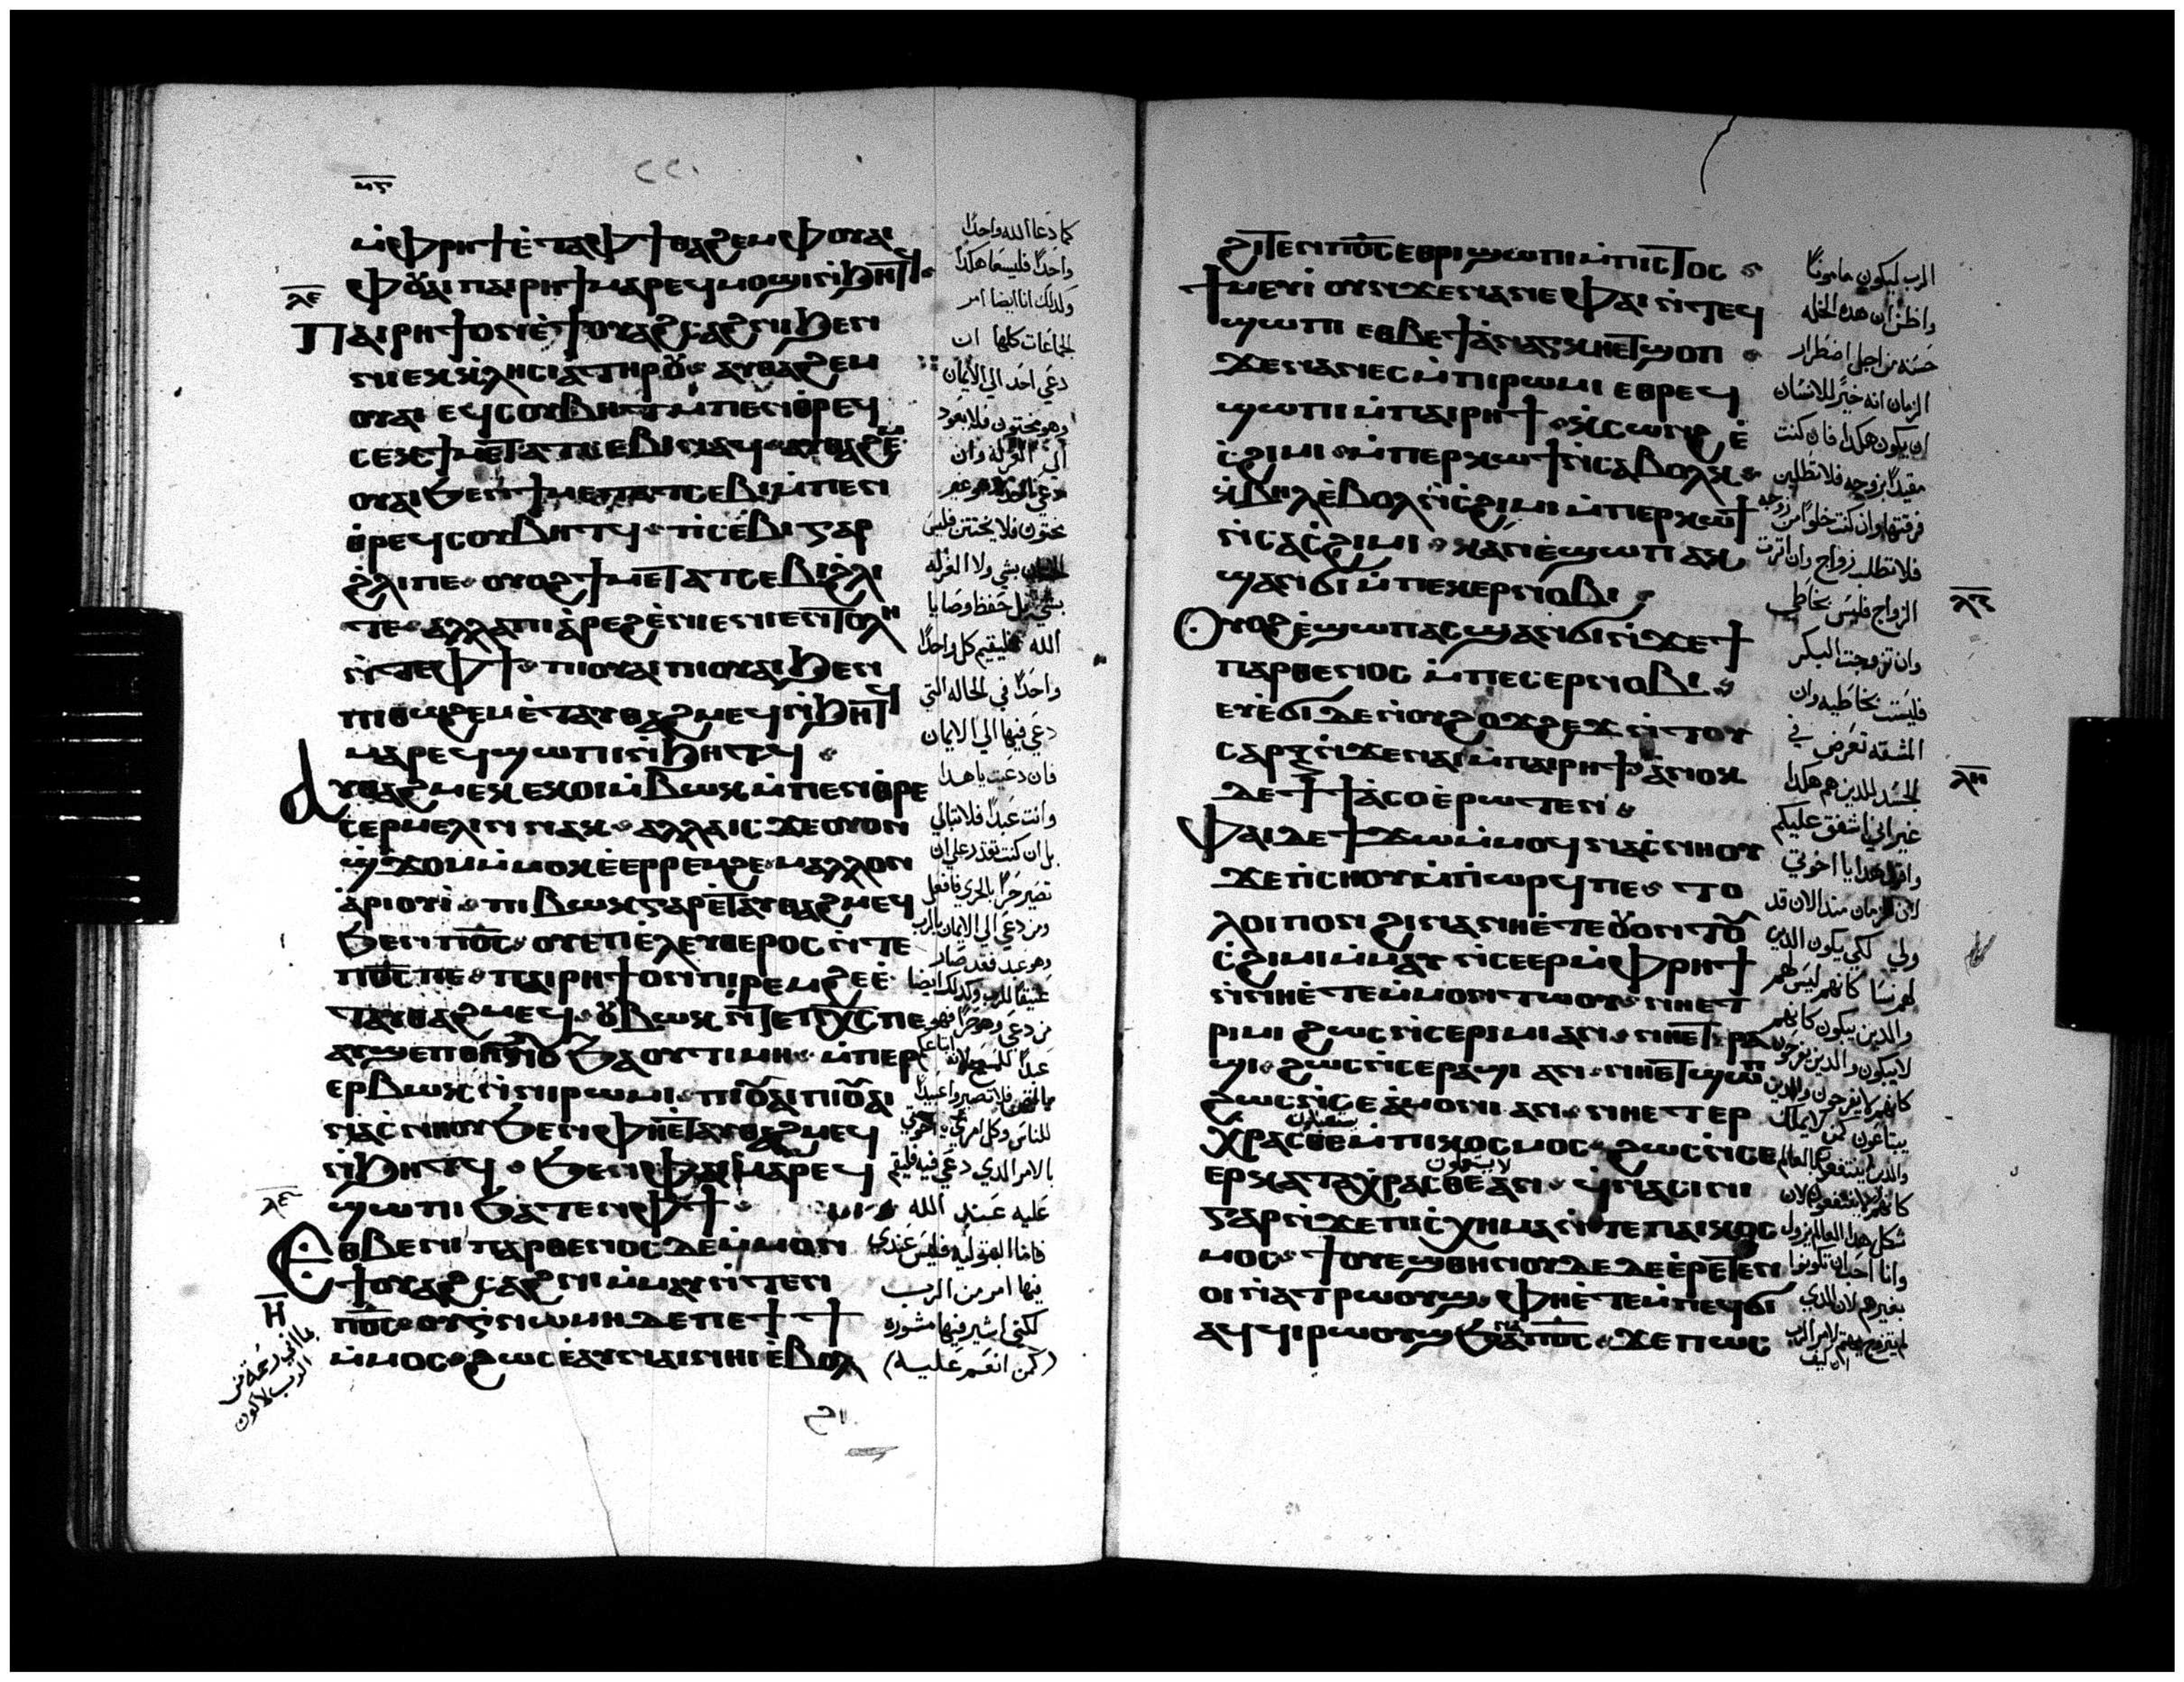 ⲙ̅ⲋ̅
ⲙ̀ⲫⲣⲏϯ ⲉ̀ⲧⲁⲫϯ ⲑⲁϩⲉⲙ ⲫⲟⲩⲁⲓ
ⲫⲟⲩⲁⲓ ⲡⲁⲓⲣⲏϯ ⲙⲁⲣⲉϥⲙⲟϣⲓ ⲛ̀ϧⲏⲧϥ
ⲡⲁⲓⲣⲏϯ ⲟⲛ ⲉ̀ϯⲟⲩⲁϩⲥⲁϩⲛⲓ ϧⲉⲛ
ⲛⲓⲉⲕⲕⲗⲏⲥⲓⲁ ⲧⲏⲣⲟⲩ ⲁⲩⲑⲁϩⲉⲙ
ⲟⲩⲁⲓ ⲉϥⲥⲟⲩⲃⲏⲧ ⲙ̀ⲡⲉⲛⲑⲣⲉϥ
ⲟⲩⲁⲓ ϧⲉⲛ ϯⲙⲉⲧⲁⲧⲥⲉⲃⲓ ⲙ̀ⲡⲉⲛ
ⲑⲣⲉϥⲥⲟⲩⲃⲏⲧϥ ⲡⲓⲥⲉⲃⲓ ⲅⲁⲣ
ϩⲗⲓ ⲡⲉ ⲟⲩⲟϩ ϯⲙⲉⲧⲁⲧⲥⲉⲃⲓ ϩⲗⲓ
ⲧⲉ ⲁⲗⲗⲁ ⲡⲓⲁ̀ⲣⲉϩ ⲉ̀ⲛⲓⲉⲛⲧⲟⲗⲏ
ⲛ̀ⲧⲉ ⲫϯ ⲡⲓⲟⲩⲁⲓ ⲡⲓⲟⲩⲁⲓ ϧⲉⲛ
ⲡⲓⲑⲱϩⲉⲙ ⲉ̀ⲧⲁⲩⲑⲁϩⲙⲉϥ ⲛ̀ϧⲏⲧϥ
ⲙⲁⲣⲉϥϣⲱⲡⲓ ⲛ̀ϧⲏⲧϥ
ⲁⲩⲑⲁϩⲙⲉⲕ ⲉⲕⲟⲓ ⲙ̀ⲃⲱⲕ ⲙ̀ⲡⲉⲛⲑⲣⲉ
ⲥⲉⲣⲙⲉⲗⲓⲛ ⲛⲁⲕ ⲁⲗⲗⲁ ⲓⲥϫⲉ ⲟⲩⲟⲛ
ϣ̀ϫⲟⲙ ⲙ̀ⲙⲟⲕ ⲉ̀ⲉⲣⲣⲉⲙϩⲉ ⲙⲁⲗⲗⲟⲛ
ⲁ̀ⲣⲓⲟⲩⲓ̀ ⲡⲓⲃⲱⲕ ⲅⲁⲣ ⲉ̀ⲧⲁⲩⲑⲁϩⲙⲉϥ
ϧⲉⲛ ⲡⲟ̅ⲥ̅ ⲟⲩⲁⲡⲉⲗⲉⲩⲑⲉⲣⲟⲥ ⲛ̀ⲧⲉ
ⲡⲟ̅ⲥ̅ ⲡⲉ ⲡⲁⲓⲣⲏϯ ⲟⲛ ⲡⲓⲣⲉⲙϩⲉ ⲉ̀
ⲧⲁⲩⲑⲁϩⲙⲉϥ ⲟⲩⲃⲱⲕ ⲛ̀ⲧⲉ ⲡⲭ̅ⲥ̅ ⲡⲉ
ⲁⲩϣⲉⲡ ⲑⲏⲛⲟⲩ ϧⲁ ⲟⲩⲧⲓⲙⲏ ⲙ̀ⲡⲉⲣ
ⲉⲣⲃⲱⲕ ⲛ̀ⲛⲓⲣⲱⲙⲓ ⲡⲓⲟⲩⲁⲓ ⲡⲓⲟⲩⲁⲓ
ⲛⲁⲥ̀ⲛⲏⲟⲩ ϧⲉⲛ ⲫⲏⲉⲧⲁⲩⲑⲁϩⲙⲉϥ
ⲛ̀ϧⲏⲧϥ ϧⲉⲛ ⲫⲁⲓ ⲙⲁⲣⲉϥ
ϣⲱⲡⲓ ϧⲁⲧⲉⲛ ⲫϯ
ⲉⲑⲃⲉ ⲛⲓⲡⲁⲣⲑⲉⲛⲟⲥ ⲇⲉ ⲙ̀ⲙⲟⲛ
ϯⲟⲩⲁϩⲥⲁϩⲛⲓ ⲙ̀ⲙⲁⲩ ⲛ̀ⲧⲉⲛ
ⲡⲟ̅ⲥ̅ ⲟⲩⲅⲛⲱⲙⲏ ⲇⲉ ⲡⲉϯϯ
ⲙ̀ⲙⲟⲥ ϩⲱⲥ ⲉ̀ⲁⲩⲛⲁⲓ ⲛⲏⲓ ⲉ̀ⲃⲟⲗ
كما دعا الله واحدا
واحدا فليسعا هكذا
وكذلك انا ايضا امر
الجماعات كلها ان
دعي احد الي الايمان
وهو مختون فلا يعود
الي الغرلة وان
مختون فلا يختتن فليس
بشي بل حفظ وصايا
الله فليقيم كل واحدا
واحدا في الحاله التي
دعي فيها الي الايمان
فان دعيت يا هذا
وانت عبدا فلا تبالي
بل ان كنت تقدر علي ان
تصير حرا بالحري فافعل
ومن دعي الي الايمان بالرب
وهو عبد فقد صار
عتيقا للرب وكذلك ايضا
للناس وكل امري يا اخوتي
بالامر الدي دعي فيه فليقم
عليه عند الله
فاما البتوليه فليس عندي
فيها امر من الرب
لكني اشير فيها مشوره
(كمن انعم عليه)
ϩⲓⲧⲉⲛ ⲡⲟ̅ⲥ̅ ⲉⲑⲣⲓϣⲱⲡⲓ ⲙ̀ⲡⲓⲥⲧⲟⲥ
ϯⲙⲉⲩⲓ̀ ⲟⲩⲛ ϫⲉ ⲛⲁⲛⲉ ⲫⲁⲓ ⲛ̀ⲧⲉϥ
ϣⲱⲡⲓ ⲉⲑⲃⲉ ϯⲁ̀ⲛⲁⲅⲕⲏ ⲉⲧϣⲟⲡ
ϫⲉ ⲛⲁⲛⲉⲥ ⲙ̀ⲡⲓⲣⲱⲙⲓ ⲉⲑⲣⲉϥ
ϣⲱⲡⲓ ⲙ̀ⲡⲁⲓⲣⲏϯ ⲕ̀ⲥⲱⲛϩ ⲉ̀
ⲥ̀ϩⲓⲙⲓ ⲙ̀ⲡⲉⲣⲕⲱϯ ⲛ̀ⲥⲁⲃⲟⲗⲕ
ⲕ̀ⲃⲏⲗ ⲉ̀ⲃⲟⲗ ⲛ̀ⲥ̀ϩⲓⲙⲓ ⲙ̀ⲡⲉⲣⲕⲱϯ
ⲛ̀ⲥⲁ ⲥ̀ϩⲓⲙⲓ ⲕⲁⲛ ⲉ̀ϣⲱⲡ ⲁⲕ
ϣⲁⲛϭⲓ ⲙ̀ⲡⲉⲕⲉⲣⲛⲟⲃⲓ
ⲟⲩⲟϩ ⲉ̀ϣⲱⲡ ⲁⲥϣⲁⲛϭⲓ ⲛ̀ϫⲉ ϯ
ⲡⲁⲣⲑⲉⲛⲟⲥ ⲙ̀ⲡⲉⲥⲉⲣⲛⲟⲃⲓ
ⲉⲩⲉ̀ϭⲓ ⲇⲉ ⲛ̀ⲟⲩϩⲟϫϩⲉϫ ⲛ̀ⲧⲟⲩ
ⲥⲁⲣⲝ ⲛ̀ϫⲉ ⲛⲁⲓ ⲙ̀ⲡⲁⲓⲣⲏϯ ⲁ̀ⲛⲟⲕ
ⲇⲉ ϯϯⲁ̀ⲥⲟ ⲉ̀ⲣⲱⲧⲉⲛ
ⲫⲁⲓ ⲇⲉ ϯϫⲱ ⲙ̀ⲙⲟϥ ⲛⲁⲥ̀ⲛⲏⲟⲩ
ϫⲉ ⲡⲓⲥⲏⲟⲩ ⲙ̀ⲡⲓⲱⲣϥ ⲡⲉ ⲧⲟ
ⲗⲟⲓⲡⲟⲛ ϩⲓⲛⲁ ⲛⲏⲉ̀ⲧⲉ ⲟⲩⲟⲛⲧⲟⲩ
ⲥ̀ϩⲓⲙⲓ ⲙ̀ⲙⲁⲩ ⲛ̀ⲥⲉⲉⲣ ⲙ̀ⲫⲣⲏϯ
ⲛ̀ⲛⲏⲉ̀ⲧⲉ ⲙ̀ⲙⲟⲛⲧⲱⲟⲩ ⲛⲏⲉⲧ
ⲣⲓⲙⲓ ϩⲱⲥ ⲛ̀ⲥⲉⲣⲓⲙⲓ ⲁⲛ ⲛⲏⲉⲧⲣⲁ
ϣⲓ ϩⲱⲥ ⲛ̀ⲥⲉⲣⲁϣⲓ ⲁⲛ ⲛⲏⲉⲧϣⲱⲡ
ϩⲱⲥ ⲛ̀ⲥⲉⲁ̀ⲙⲟⲛⲓ ⲁⲛ ⲛⲏⲉⲧⲉⲣ
ⲭⲣⲁⲥⲑⲉ ⲙ̀ⲡⲓⲕⲟⲥⲙⲟⲥ ϩⲱⲥ ⲛ̀ⲥⲉ
ⲉⲣⲕⲁⲧⲁⲭⲣⲁⲥⲑⲉ ⲁⲛ ϥ̀ⲛⲁⲥⲓⲛⲓ
ⲅⲁⲣ ⲛ̀ϫⲉ ⲡⲓⲥ̀ⲭⲏⲙⲁ ⲛ̀ⲧⲉ ⲡⲁⲓⲕⲟⲥ
ⲙⲟⲥ ϯⲟⲩⲉϣ ⲑⲏⲛⲟⲩ ⲇⲉ ⲉ̀ⲣⲉⲧⲉⲛ
ⲟⲓ ⲛ̀ⲁⲧⲣⲱⲟⲩϣ ⲫⲏⲉ̀ⲧⲉ ⲙ̀ⲡⲉϥϭⲓ
ⲁϥϥⲓⲣⲱⲟⲩϣ ϧⲁ ⲛⲁ ⲡⲟ̅ⲥ̅ ϫⲉ ⲡⲱⲥ
الرب ليكون مامونا
واظن ان هده الخله
حسنه من اجل اضطرار
الزمان انه خير للانسان
ان يكون هكدا فان كنت
مقيدا بزوجه فلا تطلبن
فرقتها وان كنت خلوا من زوجه
فلا تطلب زواج وان اثرت
الزواج فليس بخاطي
وان تزوجت البكر
فليست بخاطيه وان
المشقه تعرض في
الجسد للدين هم هكدا
غير اني اشفق عليكم
واقول هدا يا اخوتي
لان الزمان مند الان قد
ولي لكي يكون الدين
لهم نسا كانهم ليس لهم
والدين يبكون كانهم
لا يبكون والدين يفرحون
كانهم لا يفرحون والدين
يبتاعون كمن لا يملك
شكل هدا العالم يزول
وانا احب ان تكونوا
بغير هم لان الدي